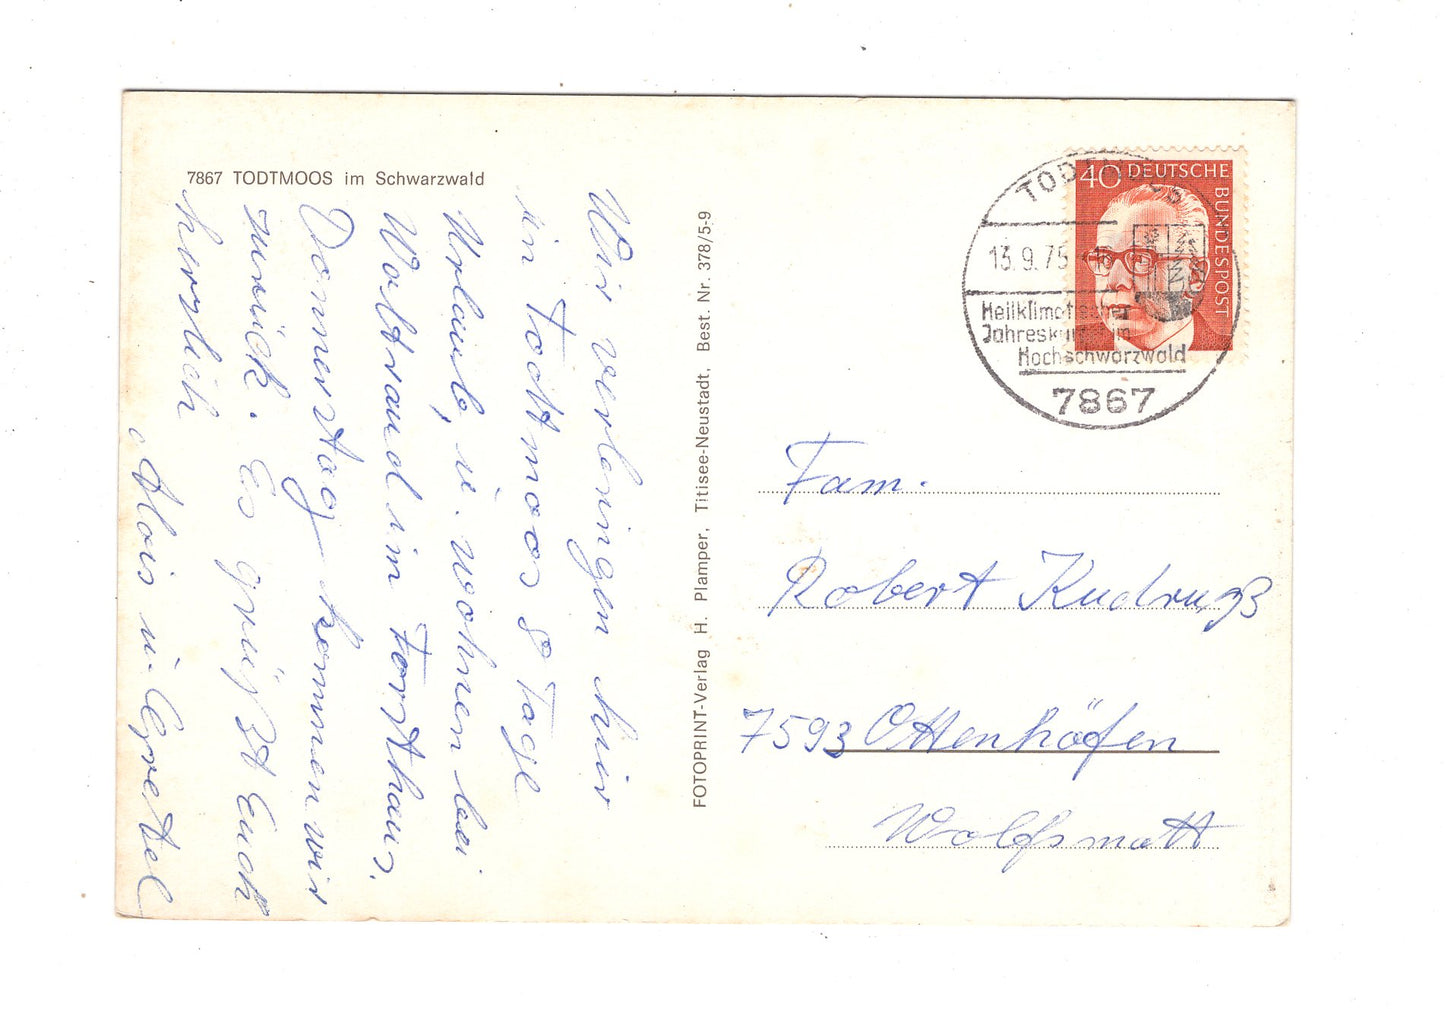 7867 TODTMOOS im Schwarzwald
Wir verbringen hier
in Todtmoos 8 Tage
Urlaub, u. wohnen bei
Waltraud im Forsthaus.
Donnerstag kommen wir
zurück. Es grüßt Euch
herzlich
Alois u. Gretel
FOTOPRINT-Verlag H. Plamper, Titisee-Neustadt, Best. Nr. 378/5-9
40 DEUTSCHE
BUNDESPOST
TODTMOOS
13.9.75
Heilklimatischer
Jahreskurort im
Hochschwarzwald
7867
Fam.
Robert
7593 Ottenhöfen
Wolfsmatt